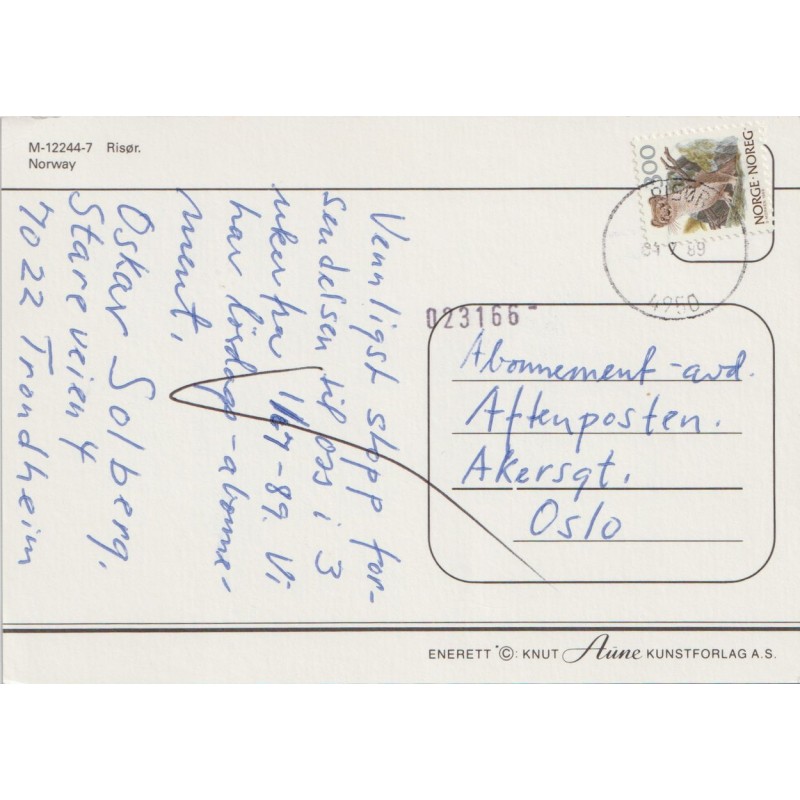 M-12244-7 Risør.
Norway
300
NORGE · NOREG
RISØR
04 7 89
4950
023166-
Vennligst stopp for-
sendelsen til oss i 3
uker fra 1/7-89. Vi
har lørdags-abonne-
ment.
Oskar Solberg,
Stareveien 4
7022 Trondheim
Abonnement-avd.
Aftenposten.
Akersgt.
Oslo
ENERETT ©: KNUT Aune KUNSTFORLAG A.S.